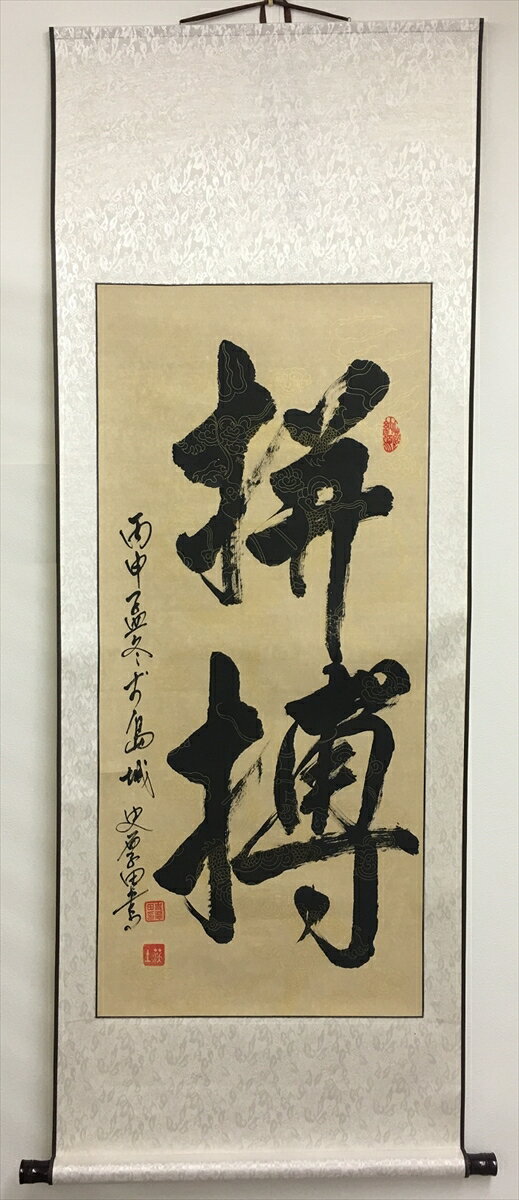 拼搏
丙申孟冬于岛城 史学田书